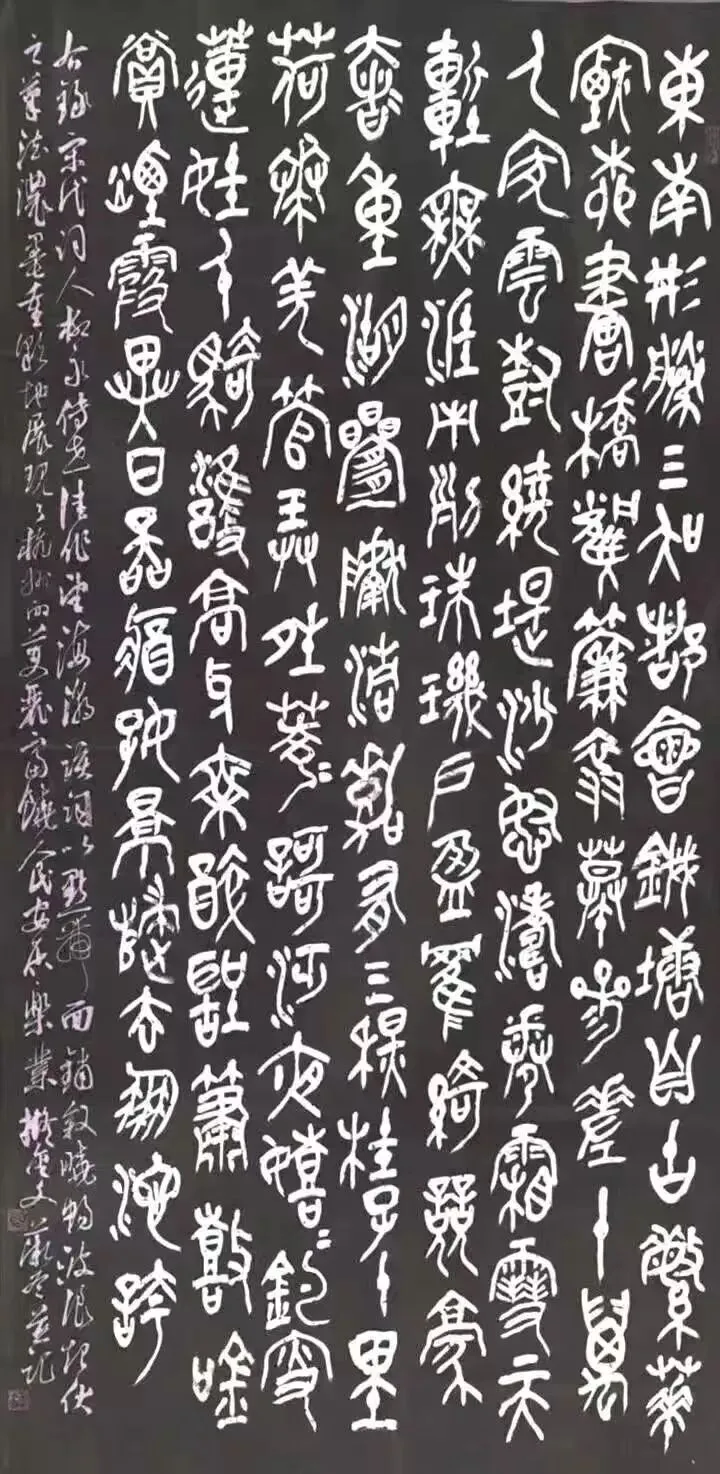 東南形勝三吳都會錢塘自古繁華
煙柳畫橋風簾翠幕參差十萬
人家雲樹繞堤沙怒濤卷霜雪天
塹無涯市列珠璣戶盈羅綺競豪
奢重湖疊巘清嘉有三秋桂子十里
荷花羌管弄晴菱歌泛夜嬉〻釣叟
蓮娃千騎擁高牙乘醉聽簫鼓吟
賞煙霞異日圖將好景歸去鳳池誇
右錄宋代詞人柳永傳世佳作望海潮該詞以點帶面鋪敘曉暢波浪起伏
之筆法濃墨重彩地展現了杭州的美麗富饒人民安居樂業擬金文并記